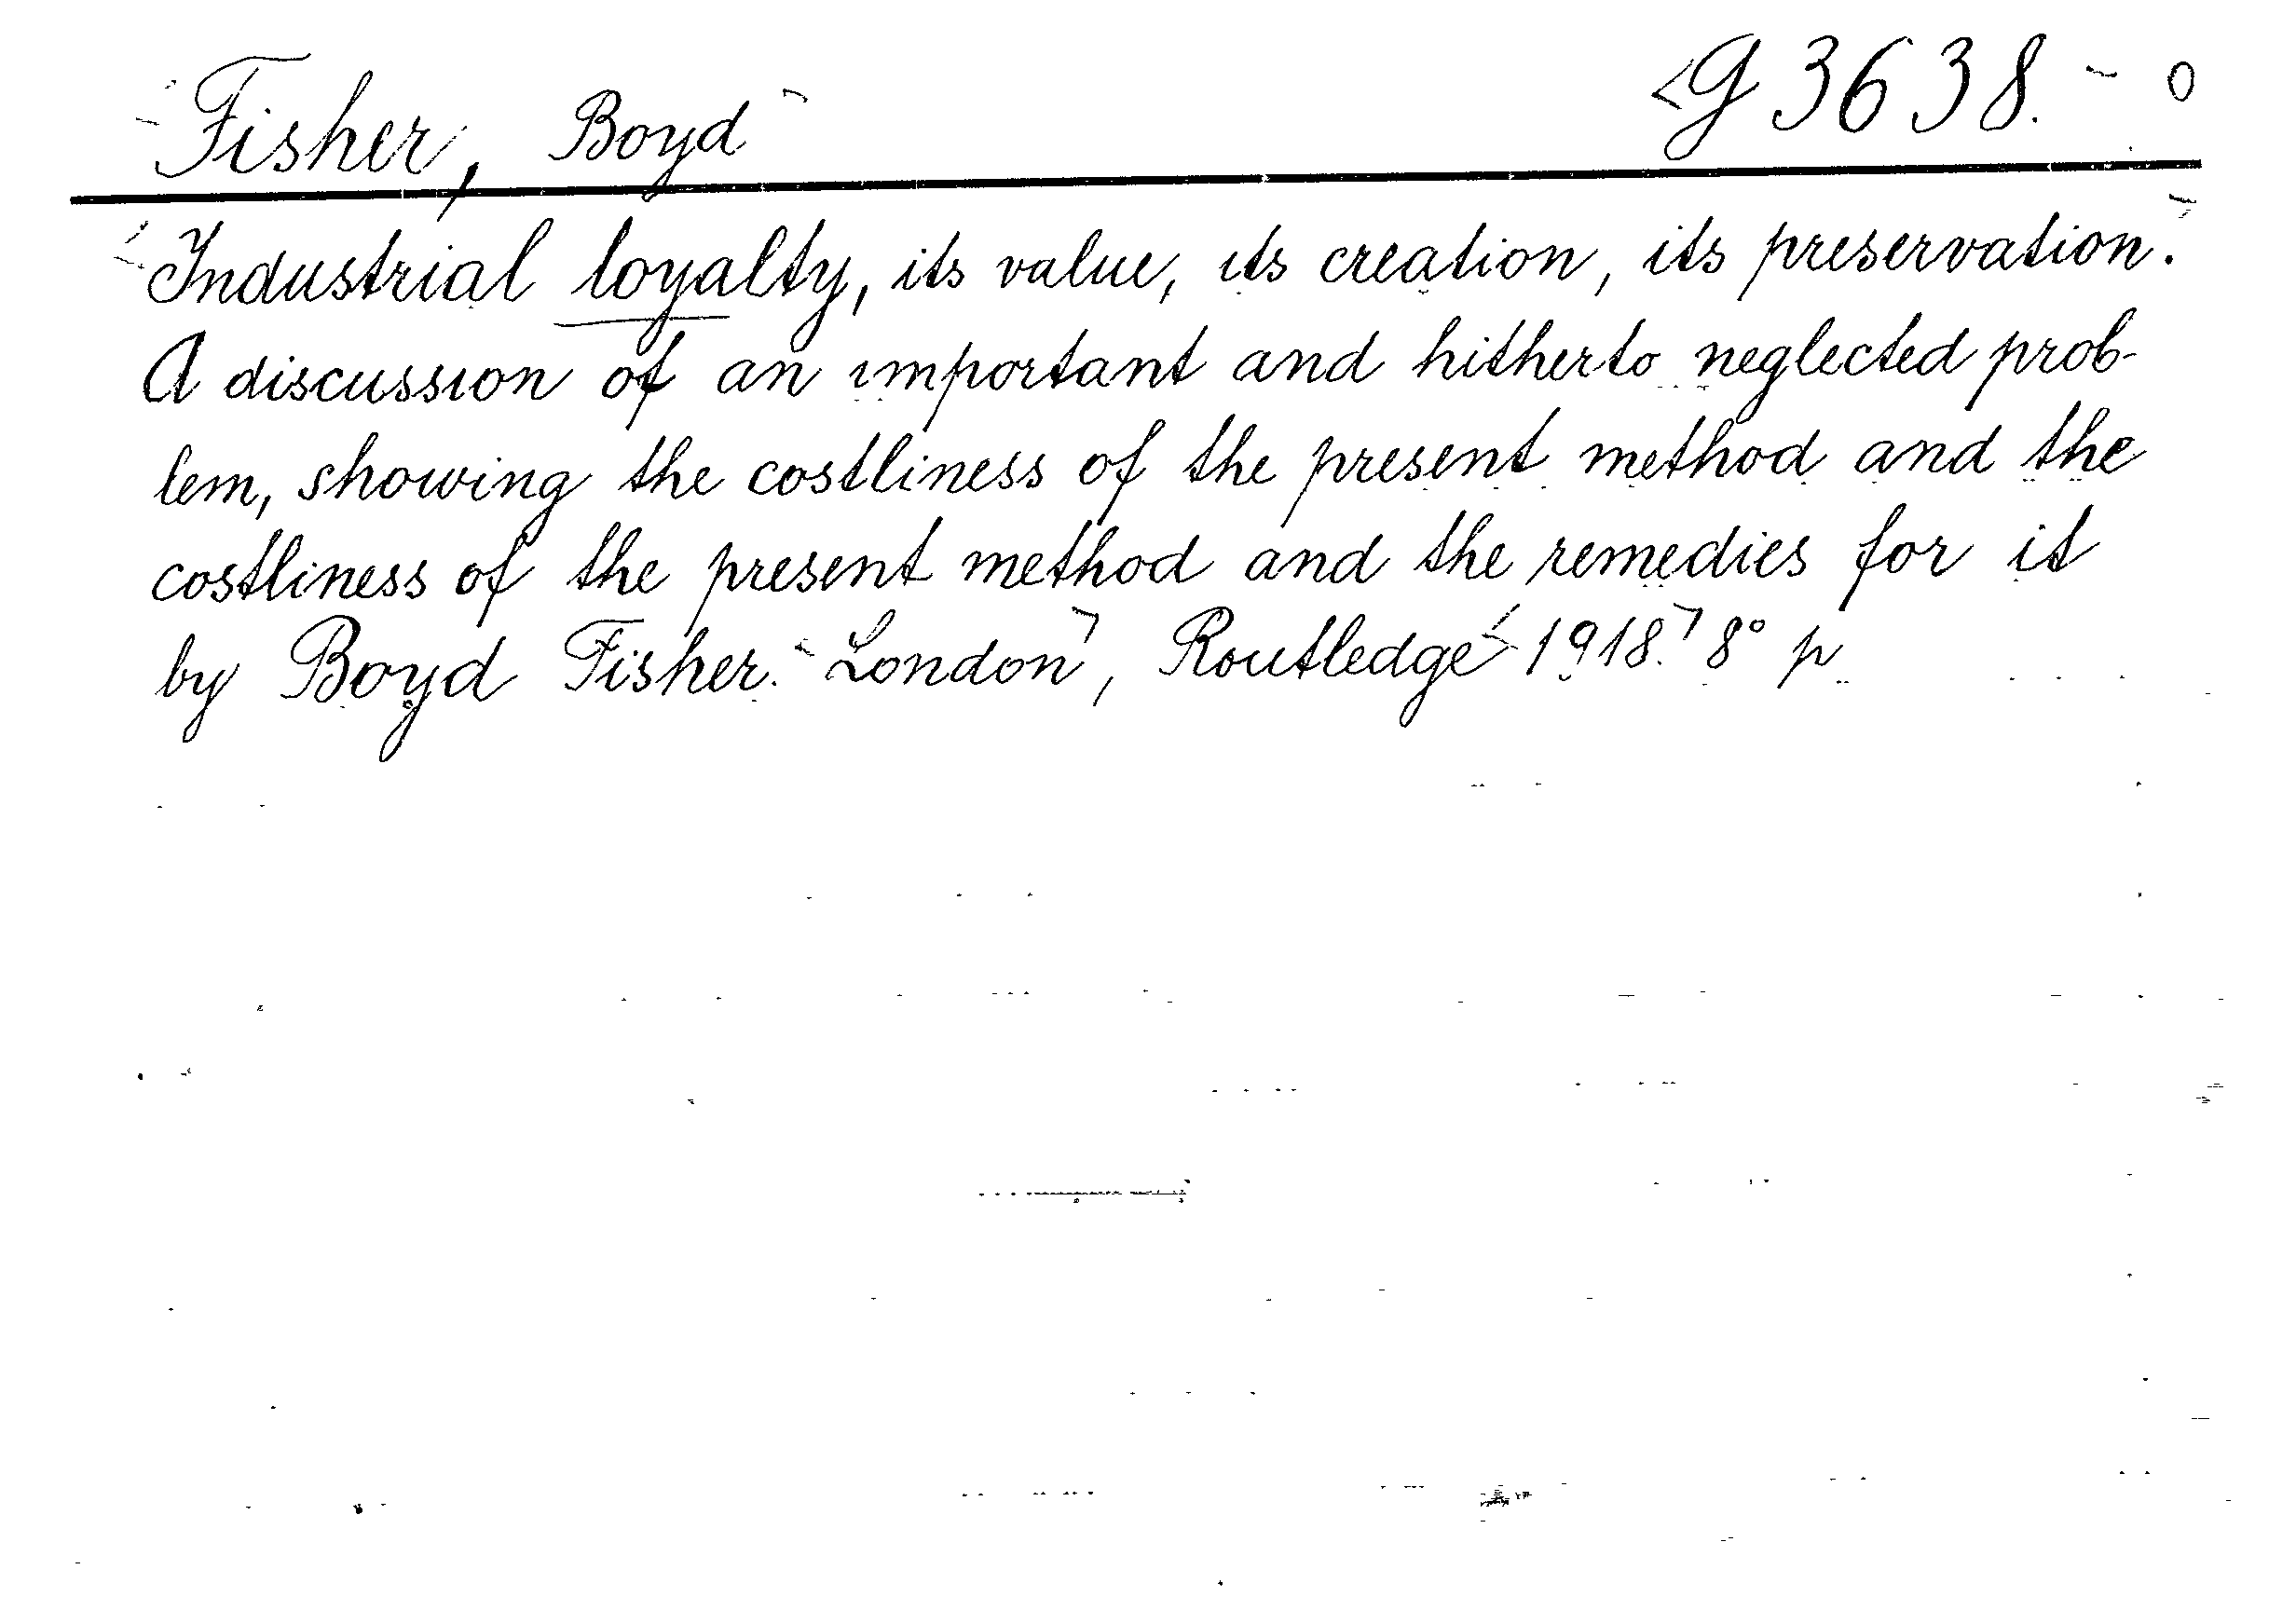 Fisher, Boyd G 3638. - 0
Industrial loyalty, its value, its creation, its preservation.
A discussion of an important and hitherto neglected prob-
lem, showing the costliness of the present method and the
costliness of the present method and the remedies for it
by Boyd Fisher. London, Routledge 1918. 8° p